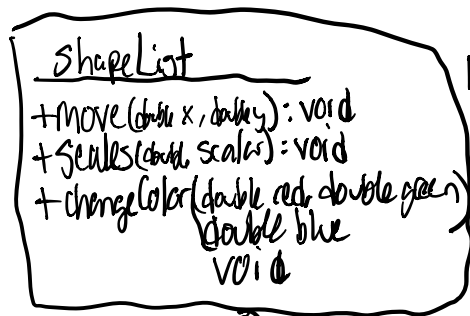 ShapeList
+move(double x, double y): void
+scales(double scalar): void
+changeColor(double red, double green)
double blue
void